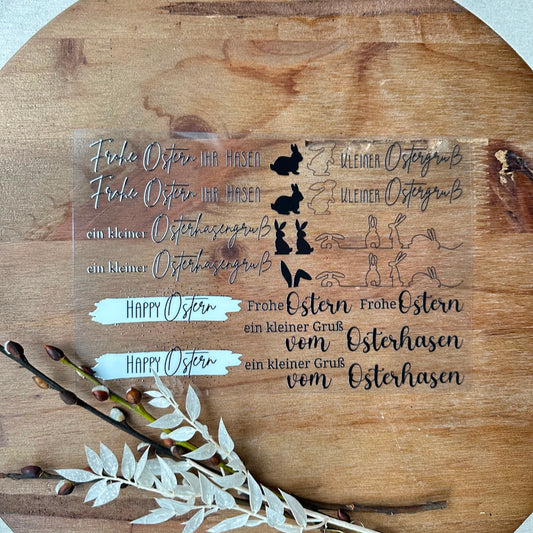 Frohe Ostern IHR HASEN
KLEINER Ostergruß
Frohe Ostern IHR HASEN
KLEINER Ostergruß
ein kleiner Osterhasengruß
ein kleiner Osterhasengruß
HAPPY Ostern
Frohe Ostern Frohe Ostern
ein kleiner Gruß
vom Osterhasen
HAPPY Ostern
ein kleiner Gruß
vom Osterhasen